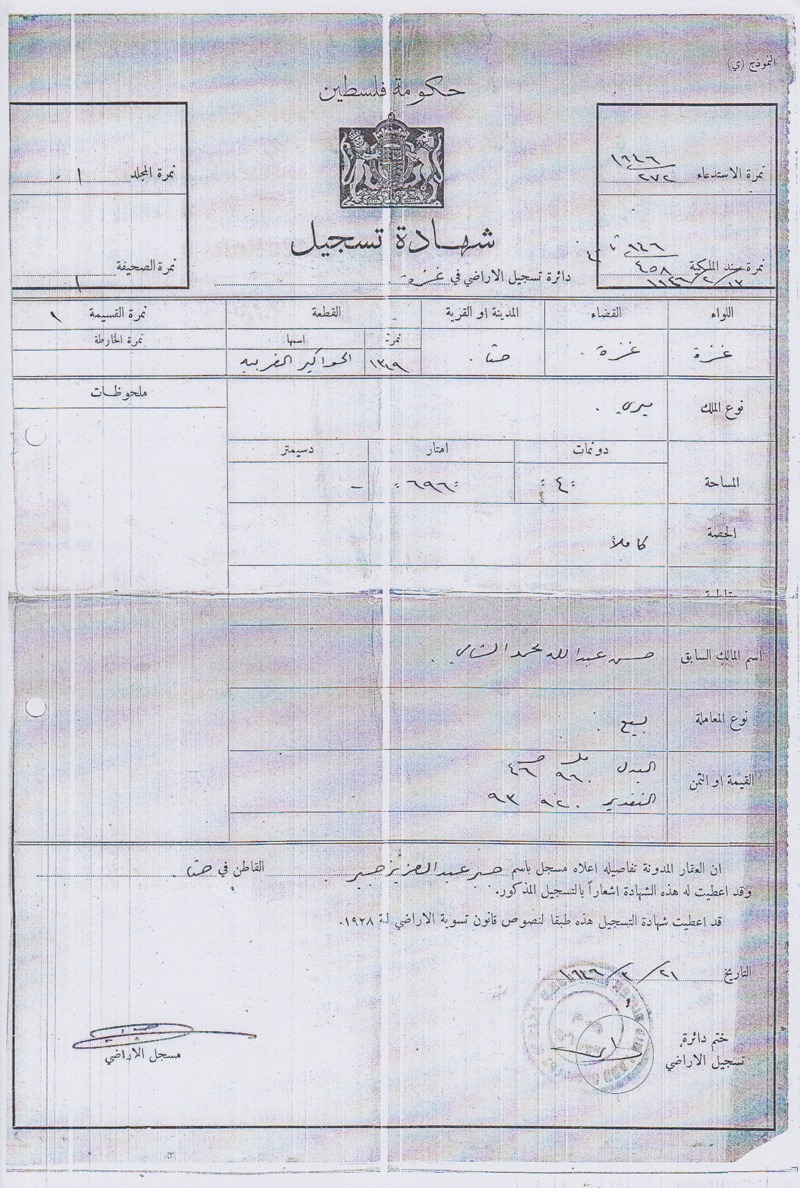 النموذج (ي)
حكومة فلسطين
نمرة الاستدعاء ١٩٤٦ / ٢٧٢
نمرة المجلد ١
شهادة تسجيل
نمرة سند الملكية ٤٥٨
نمرة الصحيفة ١
دائرة تسجيل الاراضي في غزة
اللواء القضاء المدينة او القرية القطعة نمرة القسيمة ١
نمرة اسمها نمرة الخارطة
غزة غزة حتا ١٣٤٩ الحواكير الغربيه
ملحوظات
نوع الملك ميري
دونمات امتار دسيمتر
المساحة ٤ ٦٩٦ –
الحصة كاملاً
اسم المالك السابق حسن عبد الله محمد الشامي
نوع المعاملة بيع
القيمة او الثمن البدل ٩٦٠ ٤٦
التقدير ٩٢٠ ٩٣
ان العقار المدونة تفاصيله اعلاه مسجل باسم عبد العزيز جبر القاطن في حتا
وقد اعطيت له هذه الشهادة اشعاراً بالتسجيل المذكور.
قد اعطيت شهادة التسجيل هذه طبقا لنصوص قانون تسوية الاراضي لـ ١٩٢٨.
التاريخ ٢١ / ٣ / ١٩٤٦
ختم دائرة
تسجيل الاراضي
مسجل الاراضي